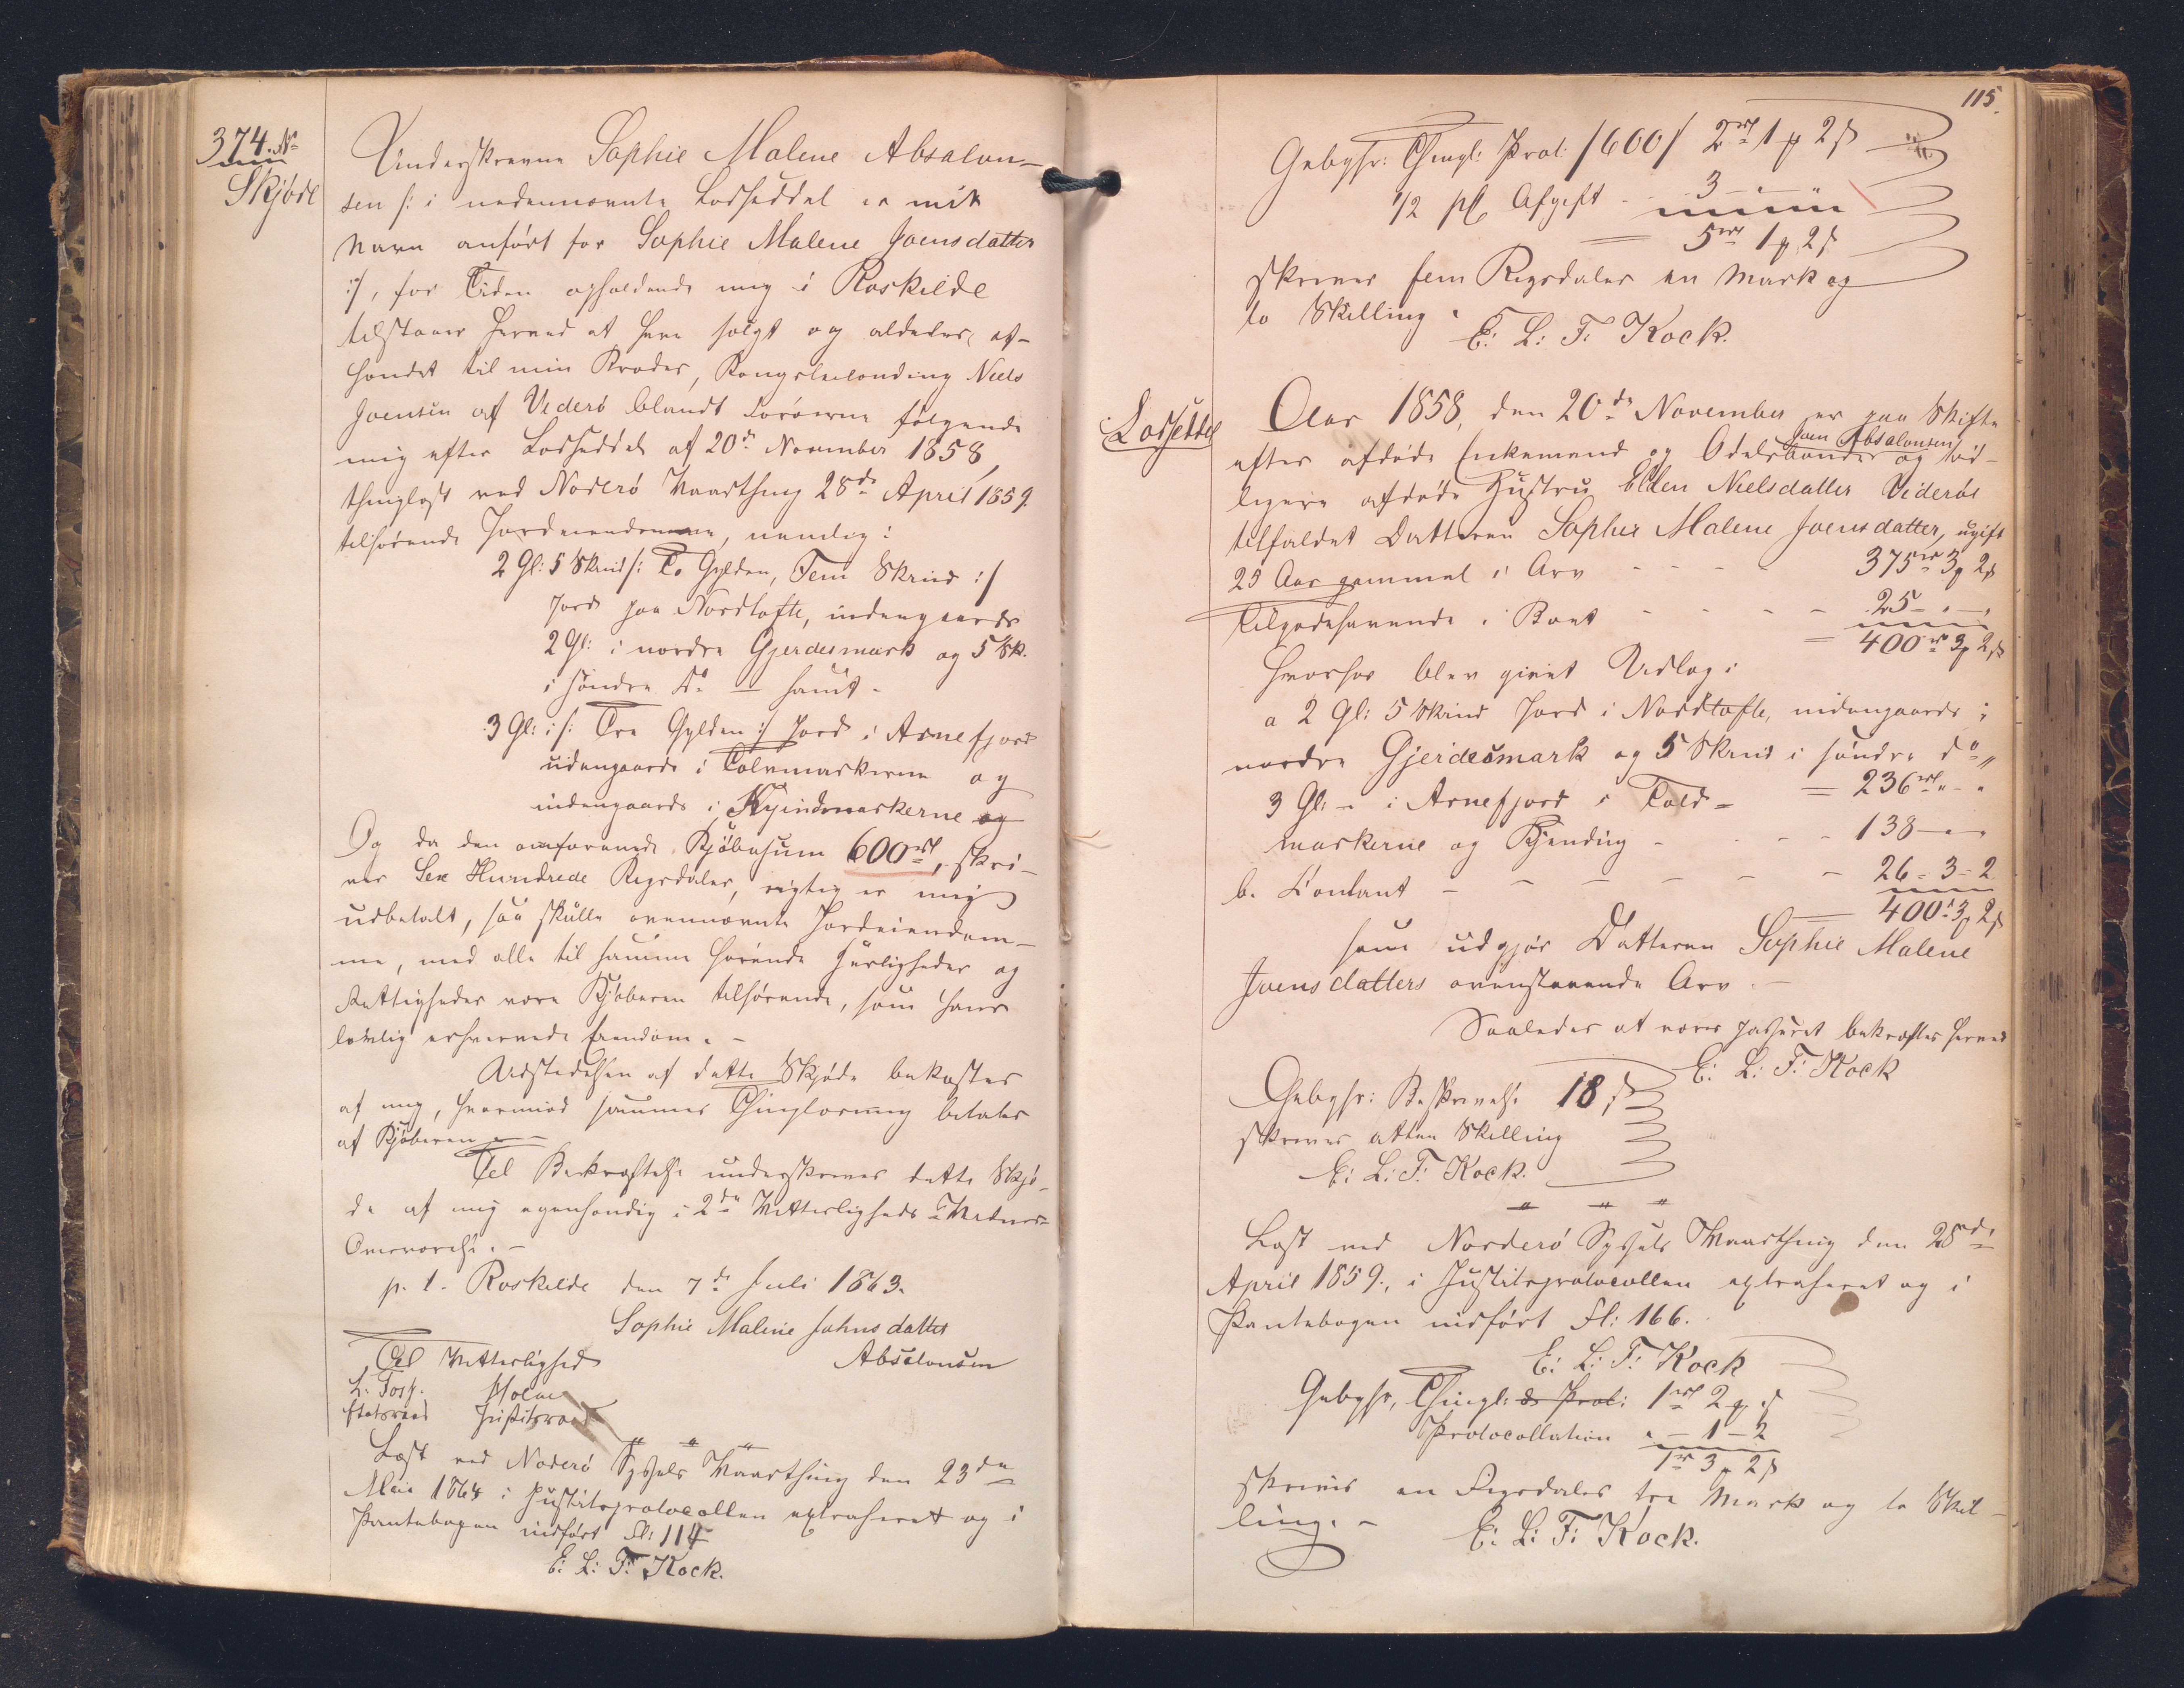 374. №
Skjöde
Underskrevne Sophie Malene Absalon-
sen /: i nedennævnte Lodseddel er mit
Navn anført for Sophie Malene Joensdatter
:/, for Tiden opholdende mig i Roskilde
tilstaaer herved at have solgt og aldeles af-
hændet til min Broder, Kongsbonde Niels
Joensen af Viderö blandt Færöerne følgende
mig efter Lodseddel af 20de November 1858,
thinglæst ved Norderö Vaarthing 28de April 1859
tilhørende Jordeiendomme, nemlig:
2 Gl: 5 Skind /: To Gylden, Fem Skind :/
Jord paa Nordtofte, indengaards
2 Gl: i nordre Gjerdesmark og 5 Sk.
i söndre Do – samt –
3 Gl: /: Tre Gylden :/ Jord i Arnefjord
udengaards i Tolvmarkerne og
indengaards i Kyindmarkerne og
Og da den omforenede Kjöbesum 600rd, skri-
ver Sex Hundrede Rigsdaler, rigtig er mig
udbetalt, saa skulle ovennævnte Jordeiendom-
me, med alle til samme hørende Herligheder og
Rettigheder være Kjøberen tilhørende, som hans
lovlig erhvervede Eiendom. –
Udstedelsen af dette Skjøde bekostes
af mig, hvorimod sammes Thinglæsning betales
af Kjøberen. –
Til Bekræftelse underskrives dette Skjö-
de af mig egenhændig i 2de Vitterligheds Vidners
Overværelse. –
p. t. Roskilde den 7de Juli 1863.
Sophie Malene Johnsdatter
Absalonsen
Til Vitterlighed
L. Holm
Etatsraad Justitsraad
Læst ved Norderö Syssels Vaarthing den 23de
Mai 1864 i Justitsprotocollen extraheret og i
Pantebogen indført fl: 114
E: L: F: Kock.
115.
Gebyhr: Thingl: Prot: /600/ 2rd 1 ₰ 2 ß
1/2 pCt Afgift - 3 - " - "
= 5rd 1 ₰ 2 ß
skriver fem Rigsdaler en Mark og
to Skilling.
E: L: F: Kock.
Lodseddel
Aar 1858, den 20de November er paa Skifte
Joen Absalonsen
efter afdöde Enkemand og Odelsbonde og tid-
ligere afdöde Hustru Ellen Nielsdatter Viderøe
tilfaldet Datteren Sophie Malene Joensdatter, ugift
25 Aar gammel i Arv - - - - 375rd 3 ₰ 2 ß
Tilgodehavende i Boet - - - - 25 - " - "
= 400rd 3 ₰ 2 ß
hvorfor blev givet Udlæg:
a 2 Gl: 5 Skind Jord i Nordtofte, indengaards i
nordre Gjerdesmark og 5 Skind i søndre do "
= 236rd " - "
3 Gl: - i Arnefjord i Told-
markerne og Kyendig - - - - 138 - " - "
b. Contant - - - - - - 26 - 3 - 2
= 400rd 3 ₰ 2 ß
som udgjør Datteren Sophie Malene
Joensdatters ovenstaaende Arv. –
Saaledes at være passeret bekræftes herved
E: L: F: Kock
Gebyhr: Beskrivelse 18 ß
skriver atten Skilling
E: L: F: Kock.
Læst ved Norderö Syssels Vaarthing den 28de
April 1859., i Justitsprotocollen extraheret og i
Pantebogen indført fl: 166.
E: L: F: Kock
Gebyhr, Thingl: & Prot: 1rd 2 ₰ " ß
Protocollation " - 1 - 2
1rd 3 ₰ 2 ß
skrives en Rigsdaler tre Mark og to Skil-
ling. –
E: L: F: Kock.